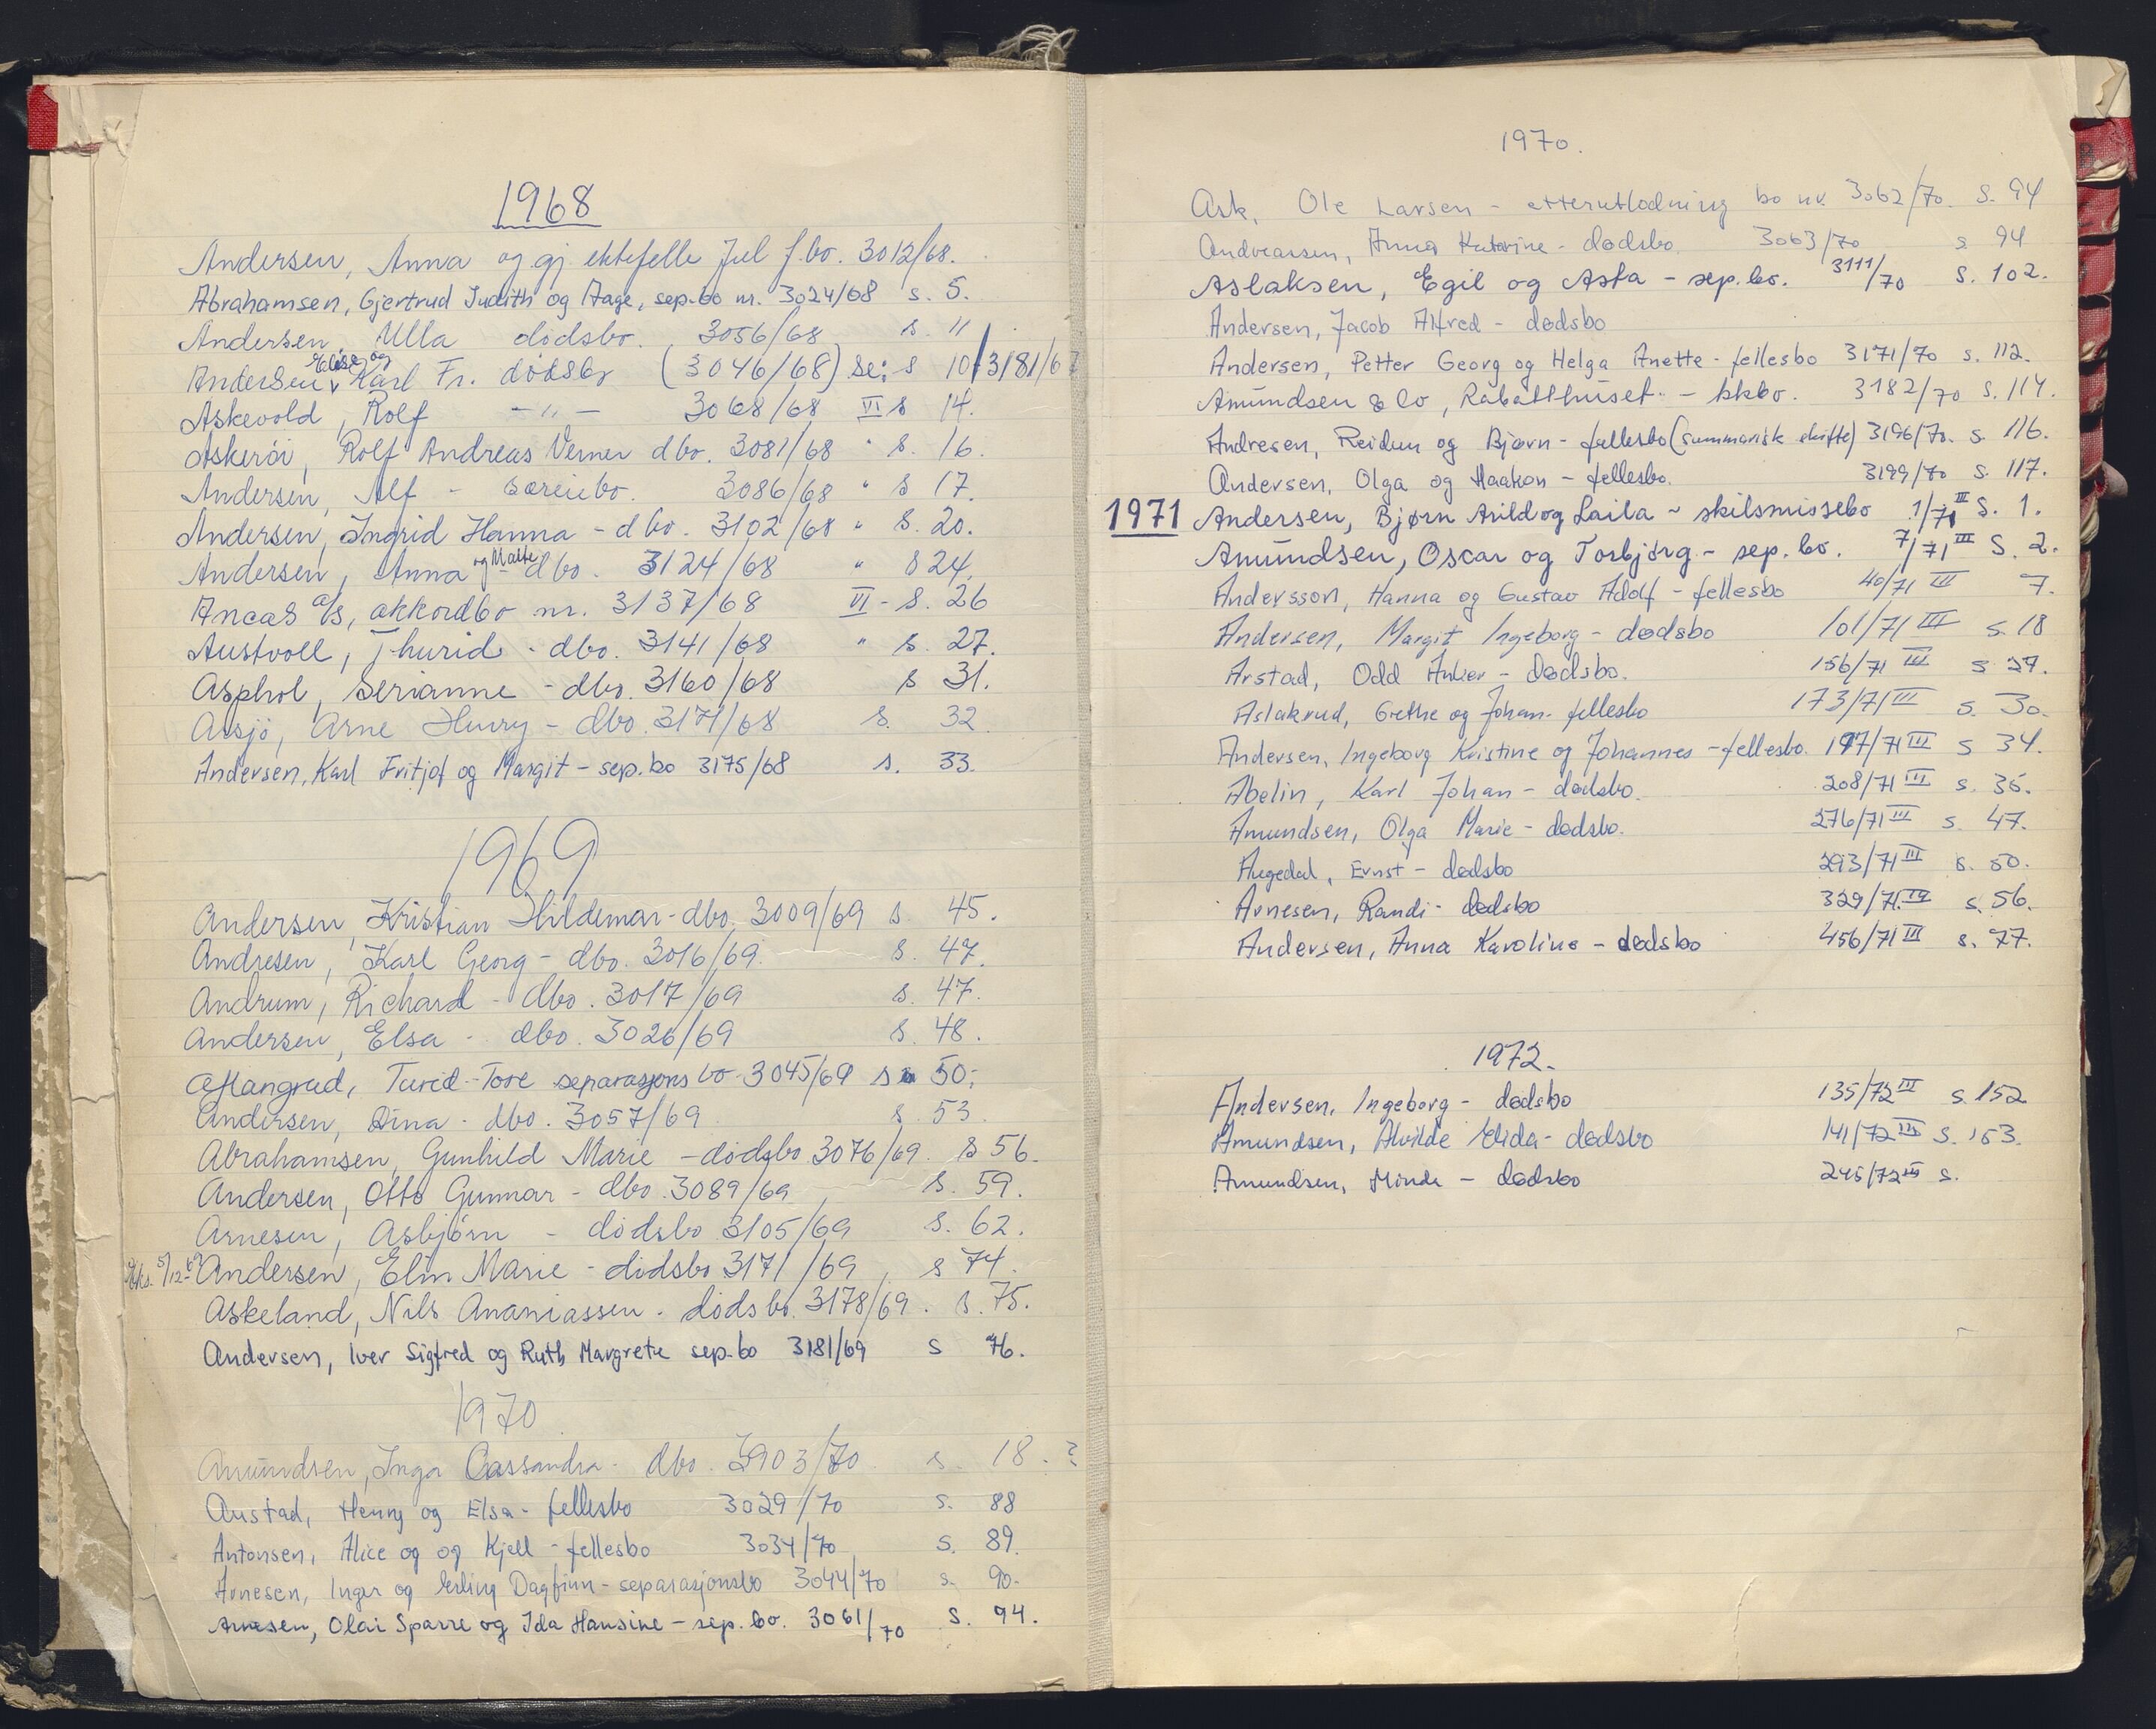 1968
Andersen, Anna og gj. ektefelle Jul f.bo. 3012/68.
Abrahamsen, Gjertrud Judith og Aage, sep.bo nr. 3024/68 s. 5.
Andersen, Ulla dødsbo. 3056/68 s. 11
Andersen, Elise og Karl Fr. dødsbo (3046/68) se: s 10/3181/67
Askevold, Rolf -"- 3068/68 VI s 14.
Askerøi, Rolf Andreas Verner dbo. 3081/68 " s. 16.
Andersen, Alf - særeiebo. 3086/68 " s 17.
Andersen, Ingrid Hanna - dbo. 3102/68 " s. 20.
Andersen, Anna og Malte dbo. 3124/68 " s 24.
Ancas a/s, akkordbo nr. 3137/68 VI - s. 26
Austvoll, Thurid - dbo. 3141/68 " s. 27.
Asphol, Serianne - dbo. 3160/68 s 31.
Arne - dbo. 3171/68 s. 32
Andersen, Karl Fritjof og Margit - sep.bo 3175/68 s. 33.
1969
Andersen, Kristian Hildemar - dbo. 3009/69 s 45.
Andresen, Karl Georg - dbo. 3016/69. s. 47.
Andrum, Richard - dbo. 3017/69 s. 47.
Andersen, Elsa - dbo. 3026/69 s. 48.
Aflangrud, Turid - Tore separasjonsbo 3045/69 s 50.
Andersen, Dina - dbo. 3057/69 s. 53.
Abrahamsen, Gunhild Marie - dødsbo 3076/69. s 56.
Andersen, Otto Gunnar - dbo. 3089/69 s. 59.
Arnesen, Asbjørn - dødsbo 3105/69 s. 62.
5/12-69 Andersen, Elin Marie - dødsbo 3171/69 s 74.
Askeland, Nils Ananiassen - dødsbo. 3178/69. s. 75.
Andersen, Iver Sigfred og Ruth Margrete sep.bo 3181/69 s 76.
1970
Amundsen, Inga Cassandra - dbo. 3903/70 s. 18. ?
Austad, Henny og Elsa - fellesbo 3029/70 s. 88
Antonsen, Alice og og Kjell - fellesbo 3034/70 s. 89.
Arnesen, Inger og Erling Dagfinn - separasjonsbo 3044/70 s. 90.
Arnesen, Olai Sparre og Ida Hansine - sep. bo. 3061/70 s. 94.
1970.
Ask, Ole Larsen - etterutlodning bo nr. 3062/70. s. 94
Andreassen, Anna Katarine - dødsbo 3063/70 s 94
Aslaksen, Egil og Asta - sep.bo. 3111/70 s. 102.
Andersen, Jacob Alfred - dødsbo
Andersen, Petter Georg og Helga Anette - fellesbo 3171/70 s. 112.
Amundsen & Co, Rabatthuset - kkbo. 3182/70 s. 114.
Andresen, Reidun og Bjørn - fellesbo (summarisk skifte) 3196/70. s. 116.
Andersen, Olga og Haakon - fellesbo. 3199/70 s. 117.
1971 Andersen, Bjørn Arild og Laila - skilsmissebo 1/71 III s. 1.
Amundsen, Oscar og Torbjørg - sep. bo. 7/71 III s. 2.
Andersson, Hanna og Gustav Adolf - fellesbo 40/71 III 7.
Andersen, Margit Ingeborg - dødsbo 101/71 III s. 18
Arstad, Odd Anker - dødsbo. 156/71 III s 27.
Aslakrud, Grethe og Johan - fellesbo 173/71 III s. 30.
Andersen, Ingeborg Kristine og Johannes - fellesbo. 197/71 III s 34.
Abelin, Karl Johan - dødsbo. 208/71 III s. 36.
Amundsen, Olga Marie - dødsbo. 276/71 III s. 47.
Augedal, Ernst - dødsbo 293/71 III s. 50.
Arnesen, Randi - dødsbo 329/71 III s. 56.
Andersen, Anna Karoline - dødsbo 456/71 III s. 77.
1972.
Andersen, Ingeborg - dødsbo 135/72 III s. 152
Amundsen, Alvilde Elida - dødsbo 141/72 III s. 153.
Amundsen, Minda - dødsbo 245/72 III s.